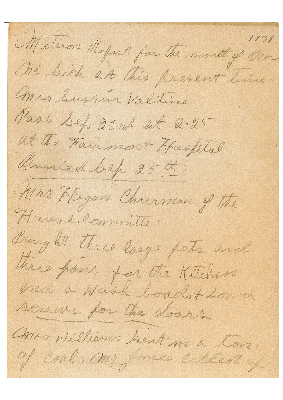 1931
Metron Report for the month of Nov
No sick at this present time
Mrs Susria Valitine
Pass Sep. 23rd at 2:25
at the Fairmont Hospital
Burried Sep 25th
Mrs Hogan Chairman of the
House Committe.
Bought three large pots and
three pans for the Kitchen
and a wash board + some
screws for the doors
Mrs Williams sent in a ton
of coal. Mr Jones called up